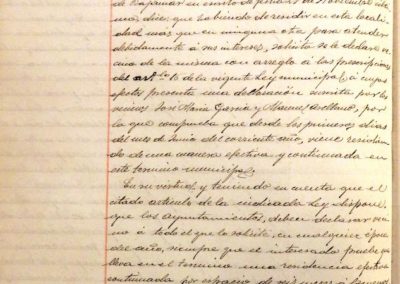 de Bajamar en escrito de fecha 29 de Noviembre últi
mo, dice: que habiendo de residir en esta locali
dad mas que en ninguna otra para atender
debidamente á sus intereses, solicita se le declare ve
cino de la misma con arreglo á las prescripciones
del artlo 15 de la vigente Ley municipal á cuyos
efectos presenta una declaración suscrita por los
vecinos José María García y Manuel Arellano, por
la que comprueba que desde los primeros dias
del mes de Junio del corriente año, viene residien
do de una manera efectiva y continuada en
este término municipal.
En su virtud, y teniendo en cuenta que el
citado articulo de la indicada Ley dispone
que los ayuntamientos, deben declarar veci
no á todo el que lo solicite, en cualquier época
del año, siempre que el interesado pruebe que
lleva en el termino una residencia efectiva
continuada por espacio de seis meses á lo menos